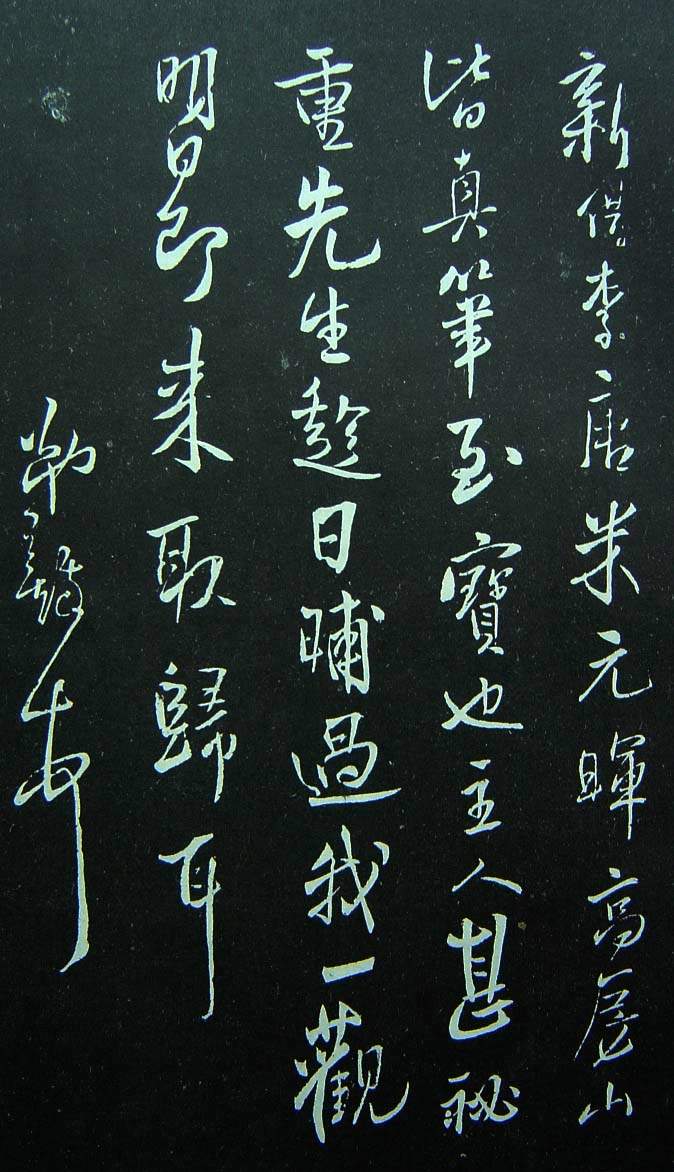 新借李唐米元暉高房山
皆真筆至寶也主人甚祕
重先生趁日晡過我一觀
明日即来取歸耳